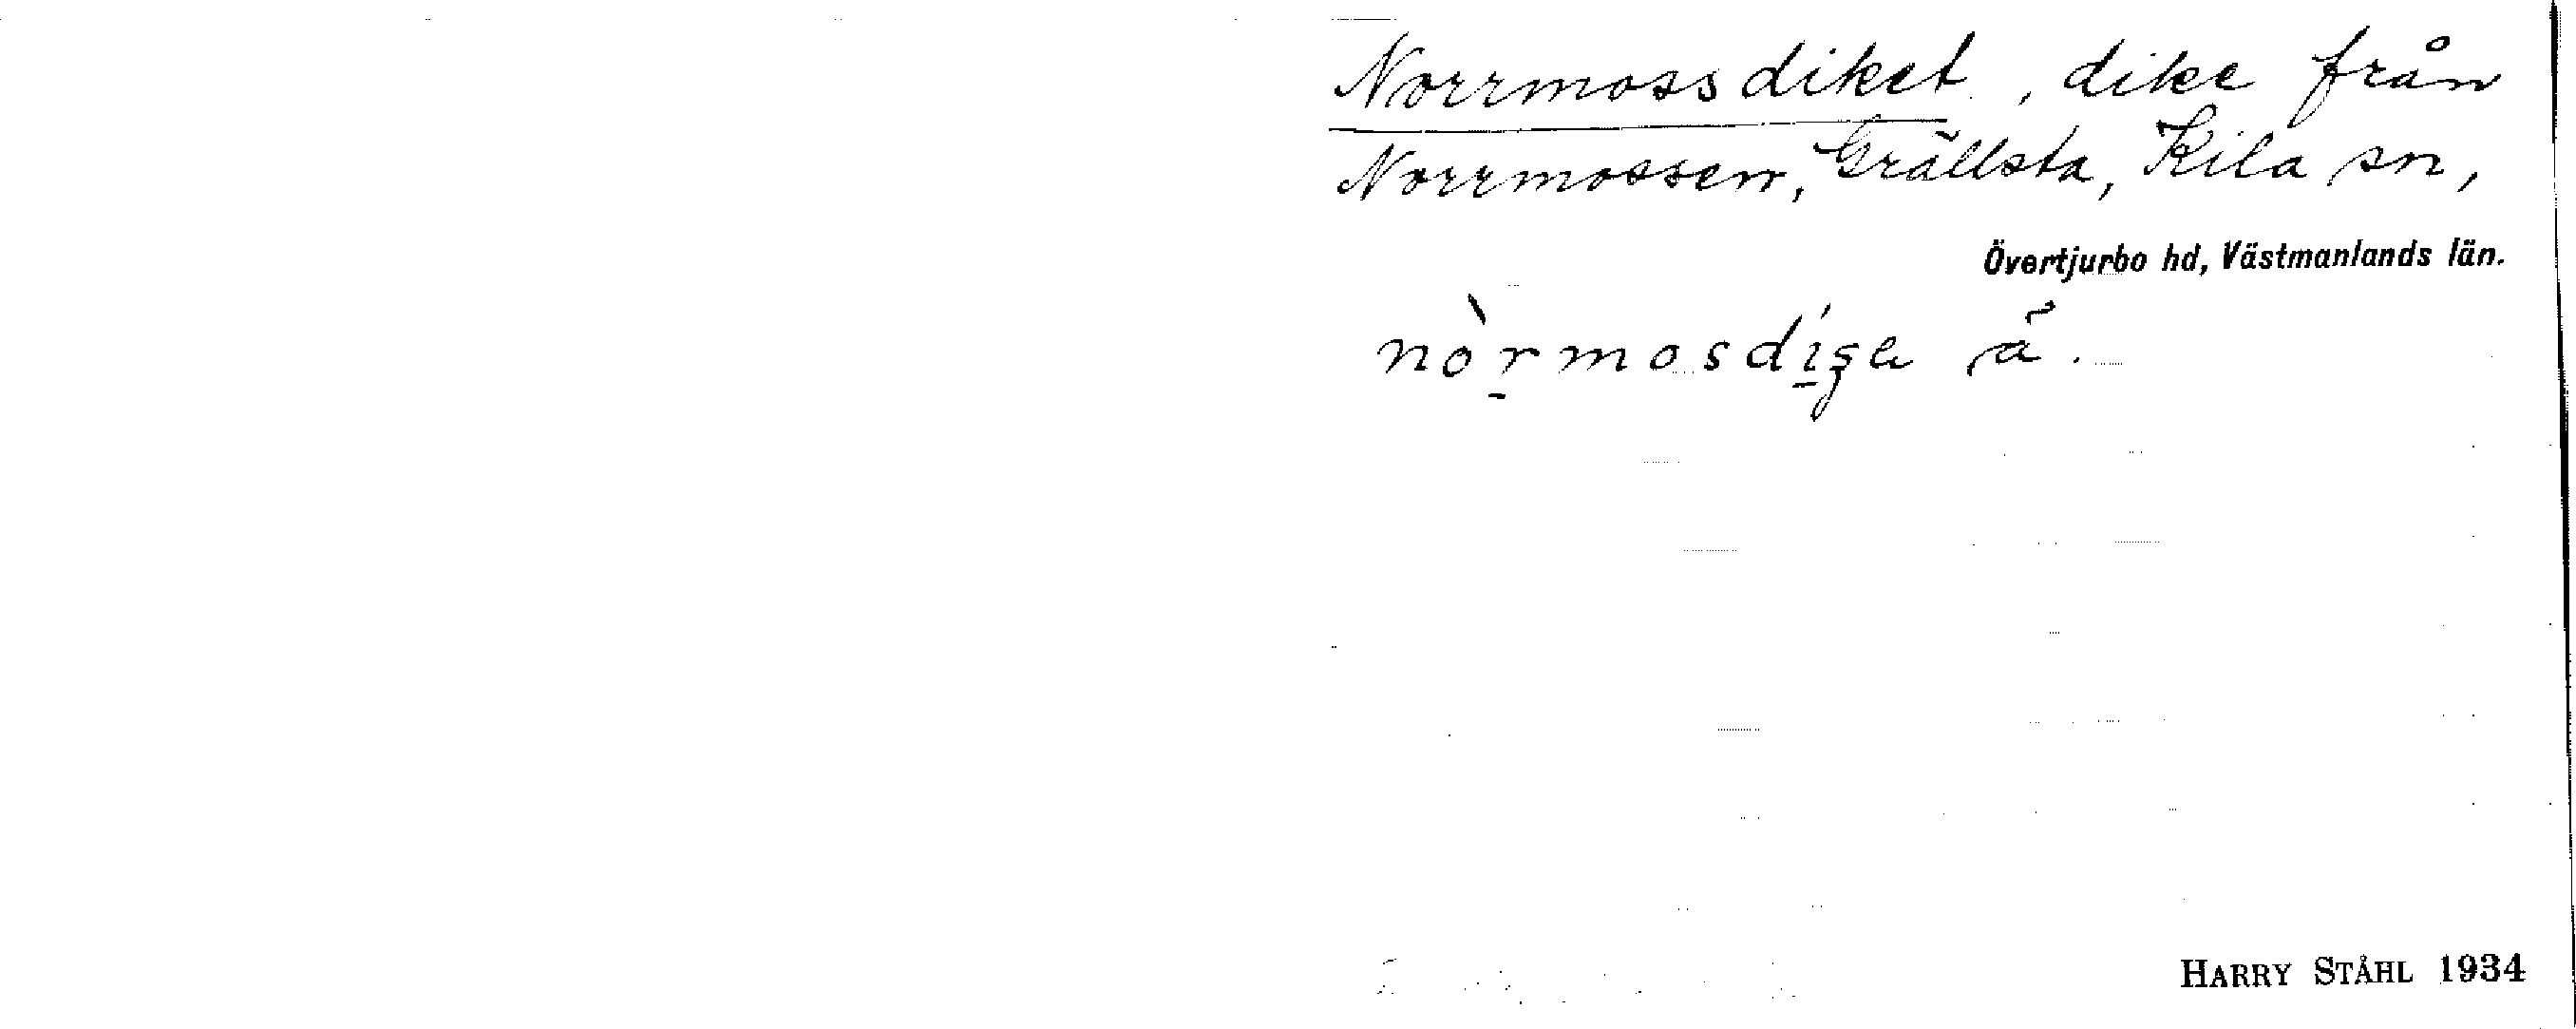 Norrmossdiket, dike från
Norrmossen, Grällsta, Kila sn,
Övertjurbo hd, Västmanlands län.
nòr̲mosdí̲ga ã.
HARRY STÅHL 1934